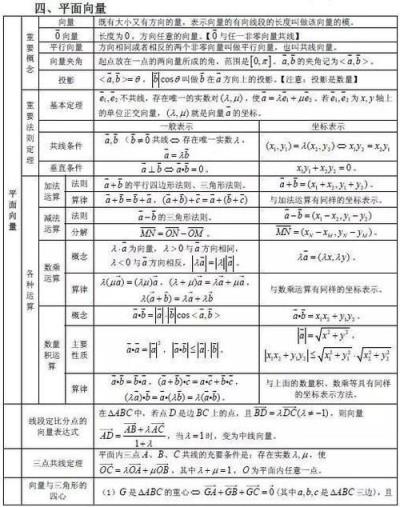 四、平面向量
平面向量
重要概念
向量
既有大小又有方向的量，表示向量的有向线段的长度叫做该向量的模。
0向量
长度为0，方向任意的向量。【0与任一非零向量共线】
平行向量
方向相同或者相反的两个非零向量叫做平行向量，也叫共线向量。
向量夹角
起点放在一点的两向量所成的角，范围是[0,π]。a,b的夹角记为<a,b>。
投影
<a,b>=θ，|b|cosθ叫做b在a方向上的投影。【注意：投影是数量】
重要法则定理
基本定理
e₁,e₂不共线，存在唯一的实数对(λ,μ)，使a=λe₁+μe₂。若e₁,e₂为x,y轴上
的单位正交向量，(λ,μ)就是向量a的坐标。
一般表示
坐标表示
共线条件
a,b（b≠0共线⇔存在唯一实数λ，
a=λb
(x₁,y₁)=λ(x₂,y₂)⇔x₁y₂=x₂y₁
垂直条件
a⊥b⇔a•b=0。
x₁y₁+x₂y₂=0。
各种运算
加法运算
法则
a+b的平行四边形法则、三角形法则。
a+b=(x₁+x₂,y₁+y₂)。
算律
a+b=b+a，(a+b)+c=a+(b+c)
与加法运算有同样的坐标表示。
减法运算
法则
a-b的三角形法则。
a-b=(x₁-x₂,y₁-y₂)
分解
MN=ON-OM。
MN=(x_N-x_M,y_N-y_M)。
数乘运算
概念
λ·a为向量，λ>0与a方向相同，
λ<0与a方向相反，|λa|=|λ||a|。
λa=(λx,λy)。
算律
λ(μa)=(λμ)a，(λ+μ)a=λa+μa，
λ(a+b)=λa+λb
与数乘运算有同样的坐标表示。
数量积运算
概念
a•b=|a|·|b|cos<a,b>
a•b=x₁x₂+y₁y₂。
主要性质
a•a=|a|²，|a•b|≤|a|·|b|。
|a|=√x²+y²，
|x₁x₂+y₁y₂|≤√x₁²+y₁²·√x₂²+y₂²
算律
a•b=b•a，(a+b)•c=a•c+b•c，
(λa)•b=a•(λb)=λ(a•b)。
与上面的数量积、数乘等具有同样
的坐标表示方法。
线段定比分点的向量表达式
在△ABC中，若点D是边BC上的点，且BD=λDC(λ≠-1)，则向量
AD=(AB+λAC)/(1+λ)，当λ=1时，变为中线向量。
三点共线定理
平面内三点A、B、C共线的充要条件是：存在实数λ,μ，使
OC=λOA+μOB，其中λ+μ=1，O为平面内任意一点。
向量与三角形的四心
（1）G是△ABC的重心⇔GA+GB+GC=0(其中a,b,c是△ABC三边)，且